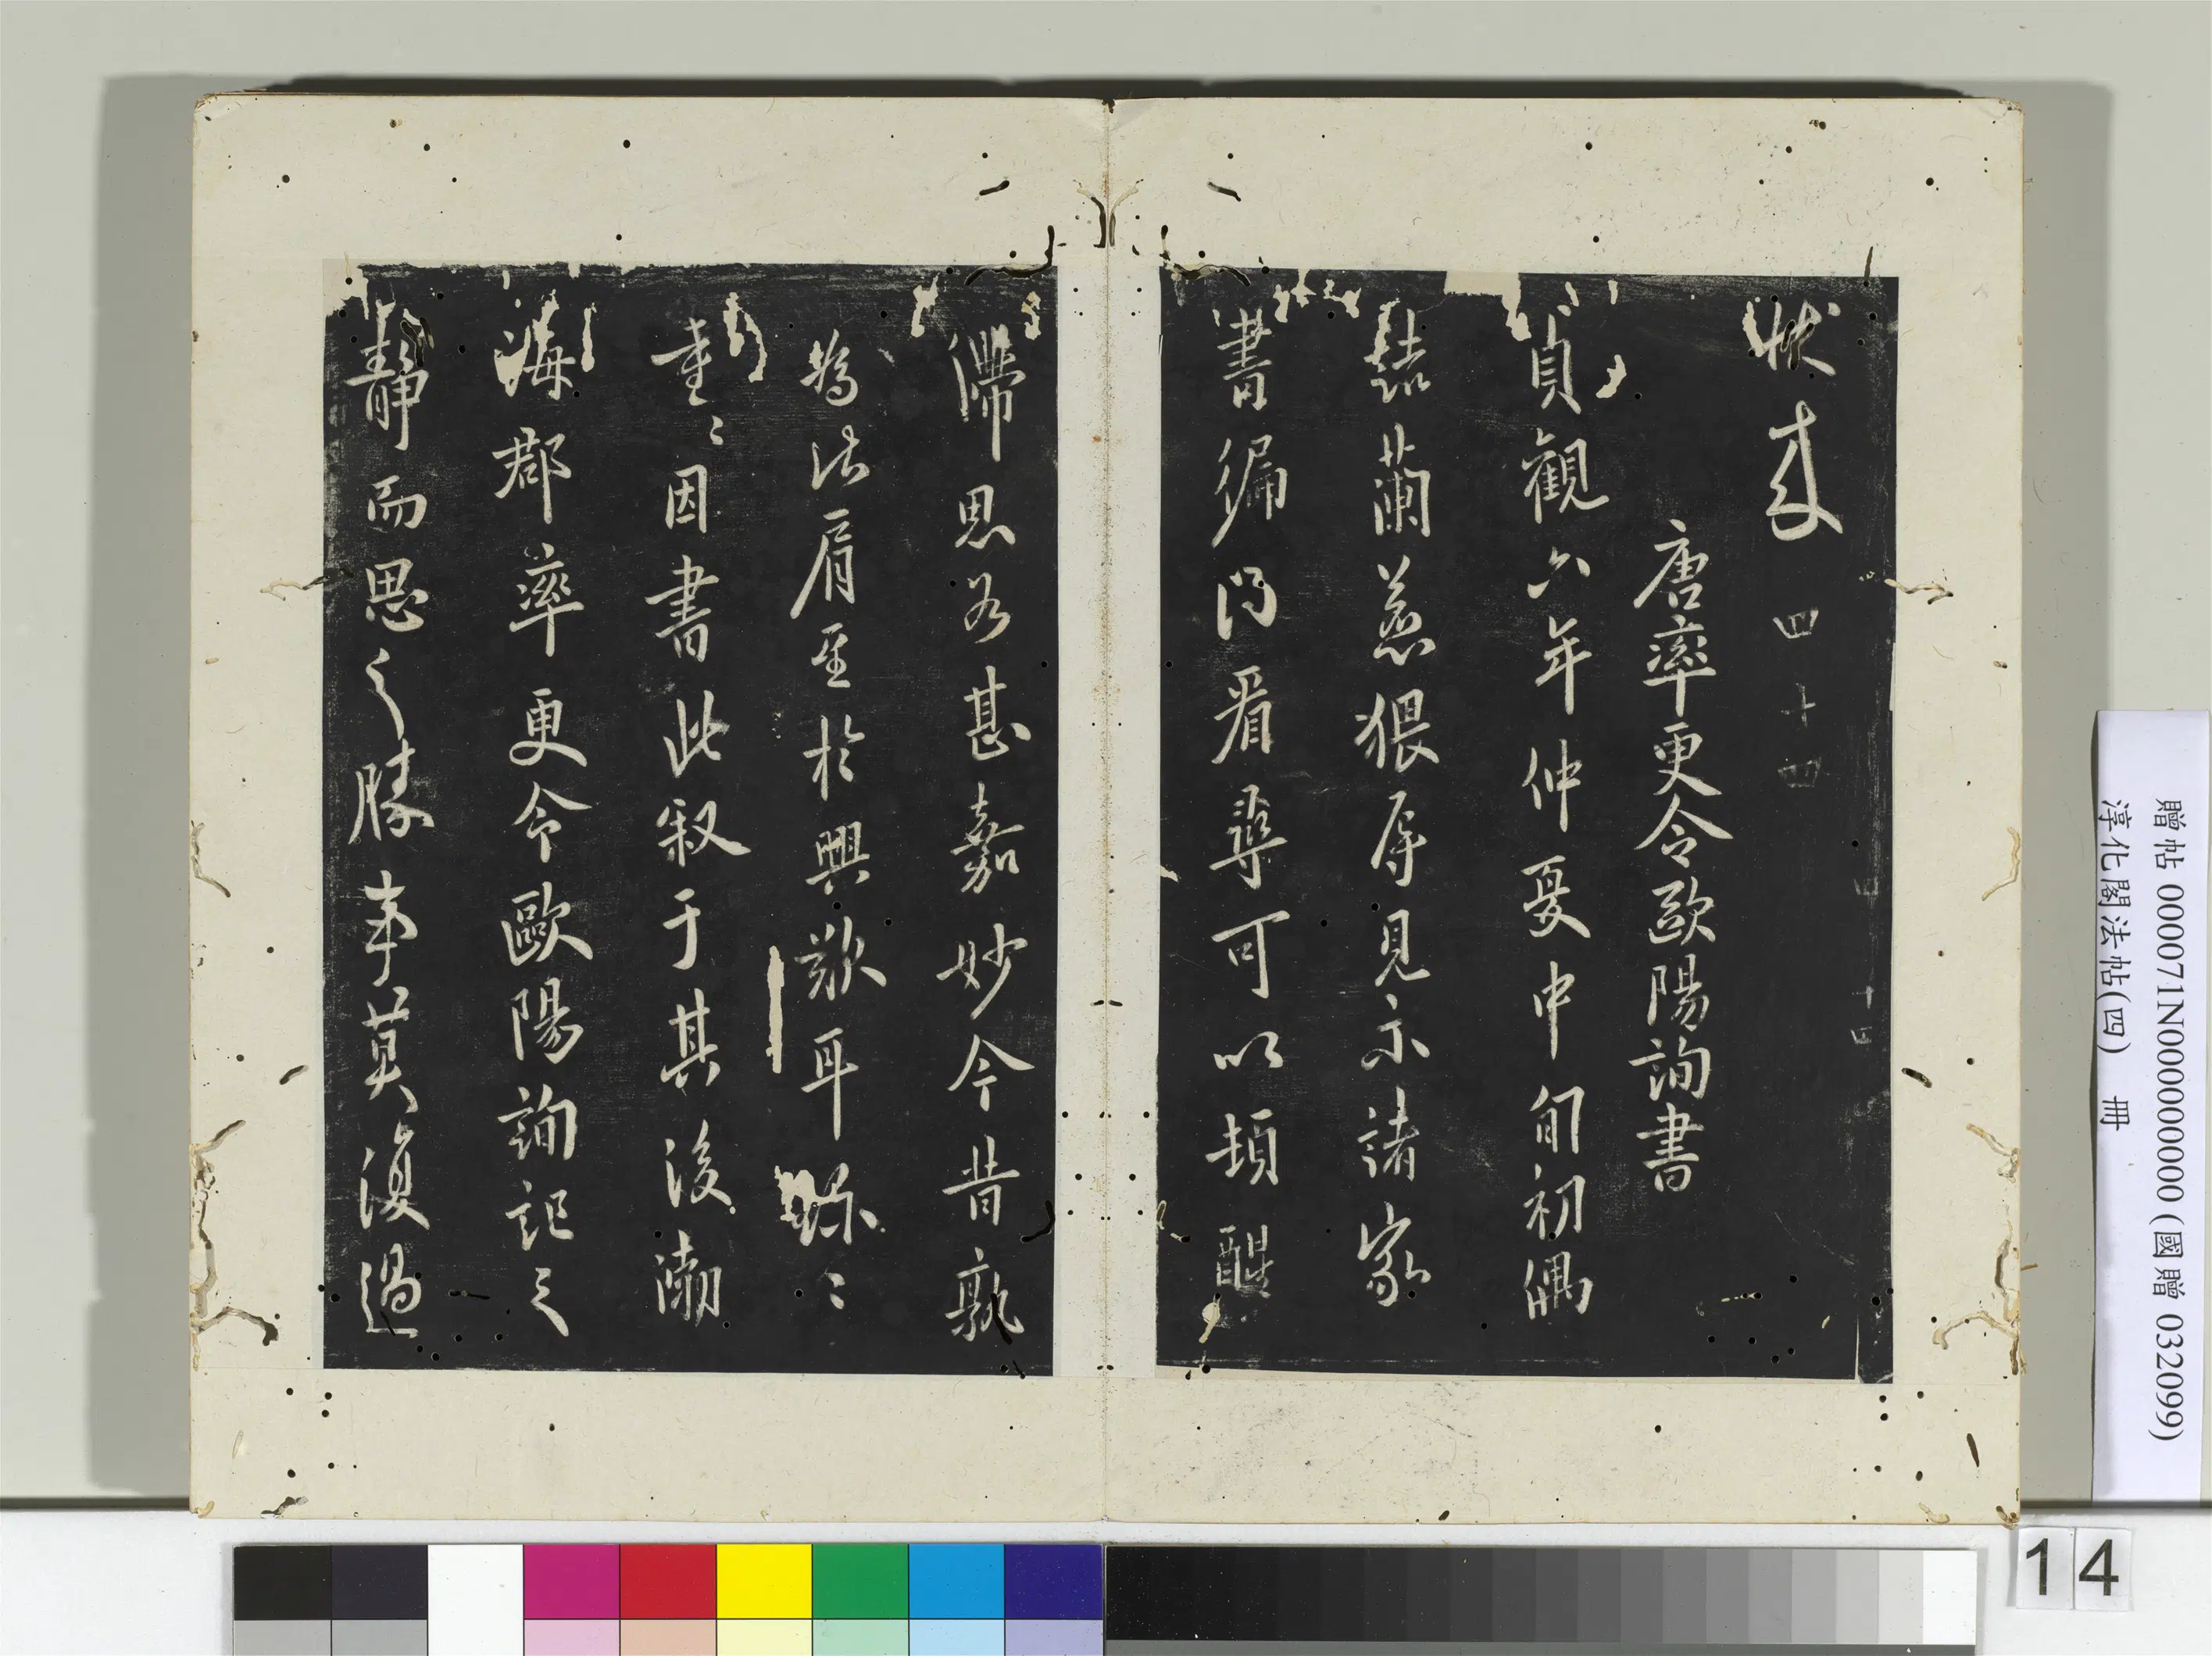 状来 四十四
唐率更令歐陽詢書
貞觀六年仲夏中旬初偶
喆蘭慈猥辱見示諸家
書徧得看尋可以頓醒
滯思甚嘉妙今昔孰
為法肩至於興歎耳弥〻
重〻因書此叙于其後渤
海郡率更令歐陽詢記之
靜而思之勝事莫復過
贈帖 000071N000000000 (國贈 032099)
淳化閣法帖(四) 冊
14